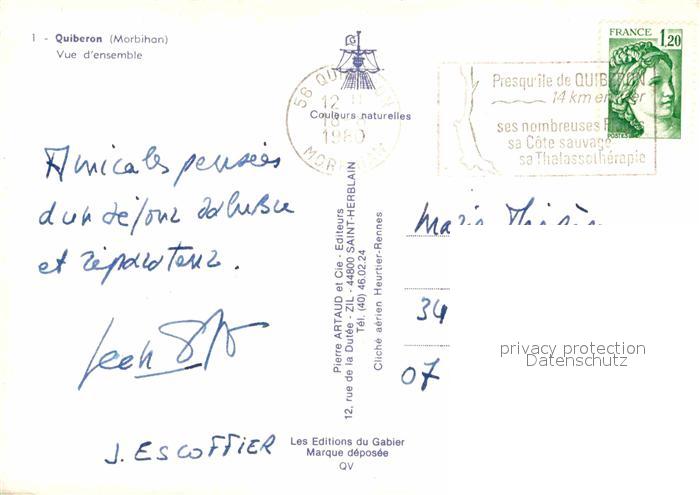 1 - Quiberon (Morbihan)
Vue d'ensemble
Couleurs naturelles
56 QUIBERON
12 H
1980
MORBIHAN
FRANCE
1,20
POSTES
Presqu'île de QUIBERON
14 km en mer
ses nombreuses
sa Côte sauvage
sa Thalassothérapie
Amicales pensées
d'un séjour salubre
et réparateur.
J. ESCOFFIER
Pierre ARTAUD et Cie - Editeurs
12, rue de la Dutée - ZIL - 44800 SAINT-HERBLAIN
Tél. (40) 46.02.24
Cliché aérien Heurtier-Rennes
Les Editions du Gabier
Marque déposée
QV
34
07
privacy protection
Datenschutz